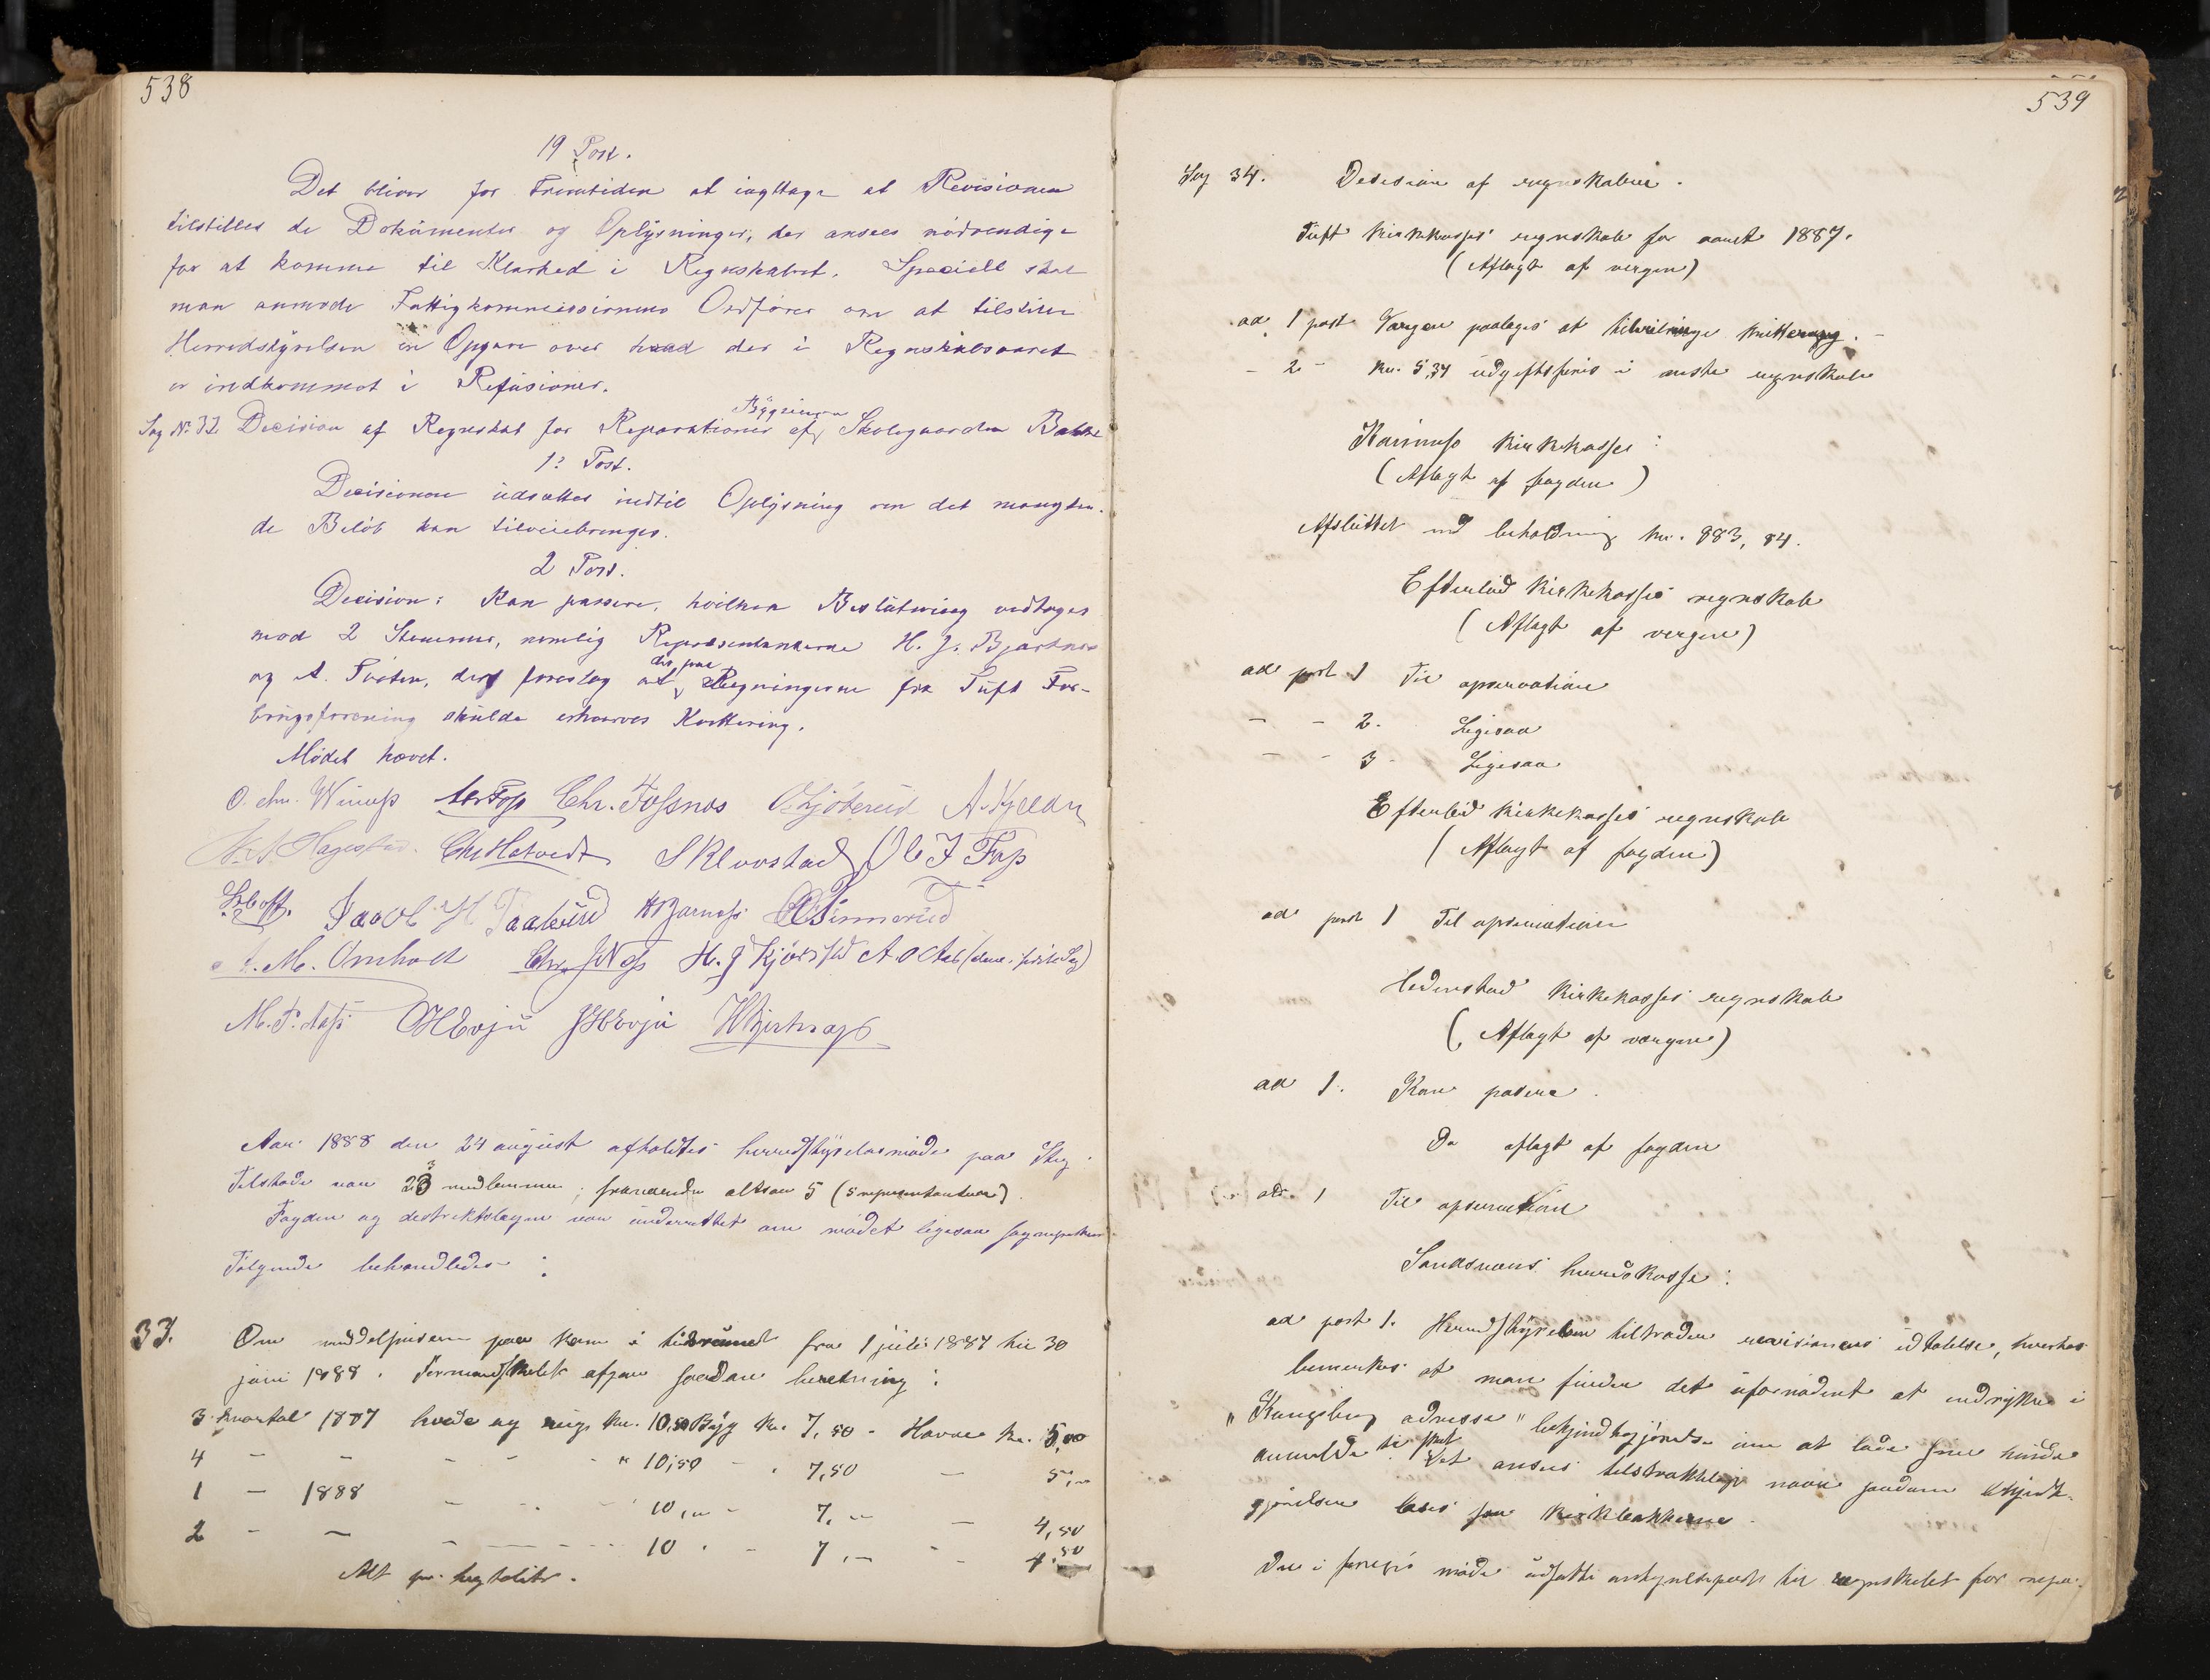 538
19 Post.
Det bliver for Fremtiden at iagttage at Revisionen
tilstilles de Dokumenter og Oplysninger, der ansees nødvendige
for at komme til Klarhed i Regnskabet. Specielt skal
man anmode Fattigkommissionens Ordfører om at tilstille
Herredstyrelsen en Opgave over hvad der i Regnskabsaaret
er indkommet i Refusioner.
Sag No 32 Decision af Regnskab for Reparationer af Bygningen Skolegaarden Bakke
1ste Post.
Decisionen udsættes indtil Oplysning om det manglen-
de Beløb kan tilveiebringes.
2 Post.
Decision: Kan passere, hvilken Beslutning vedtages
mod 2 Stemmer, nemlig Repræsentanterne H. J. Bjørtnes
og A. Tveten, der foreslog at der paa Regningerne fra Tuft For-
brugsforening skulde erhverves Kvittering.
Mødet hævet.
Chr. Fossnes
Ole J Foss
Jacob H.
A. M. Omholt Chr. J Næs
M. F. Næss OHEvju JHEvju
Aar 1888 den 24 august afholdtes herredstyrelsesmøde paa Steg.
Tilstede var 23 medlemmer, fraværende altsaa 5 (5 repræsentanter).
Fogden og destriktslægen var underrettet om mødet ligesaa
Følgende behandledes:
33. Om middelprisen paa korn i tidsrummet fra 1 juli 1887 til 30
juni 1888. Formandskabet afgav saadan beretning:
3. kvartal 1887 hvede og rug kr. 10,50 Byg kr. 7,50 - Havre kr. 5,00
4 - - - - " 10,50 - " 7,50 - 5,"
1 - 1888 - - - 10," - 7," - 4,50
2 - - - - - 10 " - 7," - - 4,50
Alt pr. hegtoliter.
539
Sag 34. Desision af regnskaber.
Tuft kirkekasses regnskab for aaret 1887.
(Aflagt af vergen)
ad 1 post Vergen paalægges at tilveiebringe kvittering. -
- 2 - kr. 5,34 udgiftsføres i næste regnskab
Komnes kirkekasse:
(Aflagt af fogden)
Afsluttet med beholdning kr. 883,84.
Efteløt kirkekasses regnskab
(Aflagt af vergen)
ad post 1 Til opservation
- - 2. Ligesaa
- - 3 - Ligesaa
Efteløt kirkekasses regnskab
(Aflagt af fogden)
ad post 1 Til opservation
kirkekasses regnskab
(Aflagt af værgen)
ad 1. Kan pasere.
Do aflagt af fogden
ad 1 Til opservation
Sandsværs herredskasse:
ad post 1. Herredstyrelsen tiltræder revisionens udtalelse, hvorhos
bemerkes at man finder det ufornødent at indrykke i
"Kongsberg adresse" bekjendtgjørelse om at lade sine hunde
anmelde til skat. Det ansees tilstrækkeligt naar saadan bekjendt-
gjørelse læses paa kirkebakkerne.
Den i forrige møde udsatte antegnelsespost til regnskabet for repa-